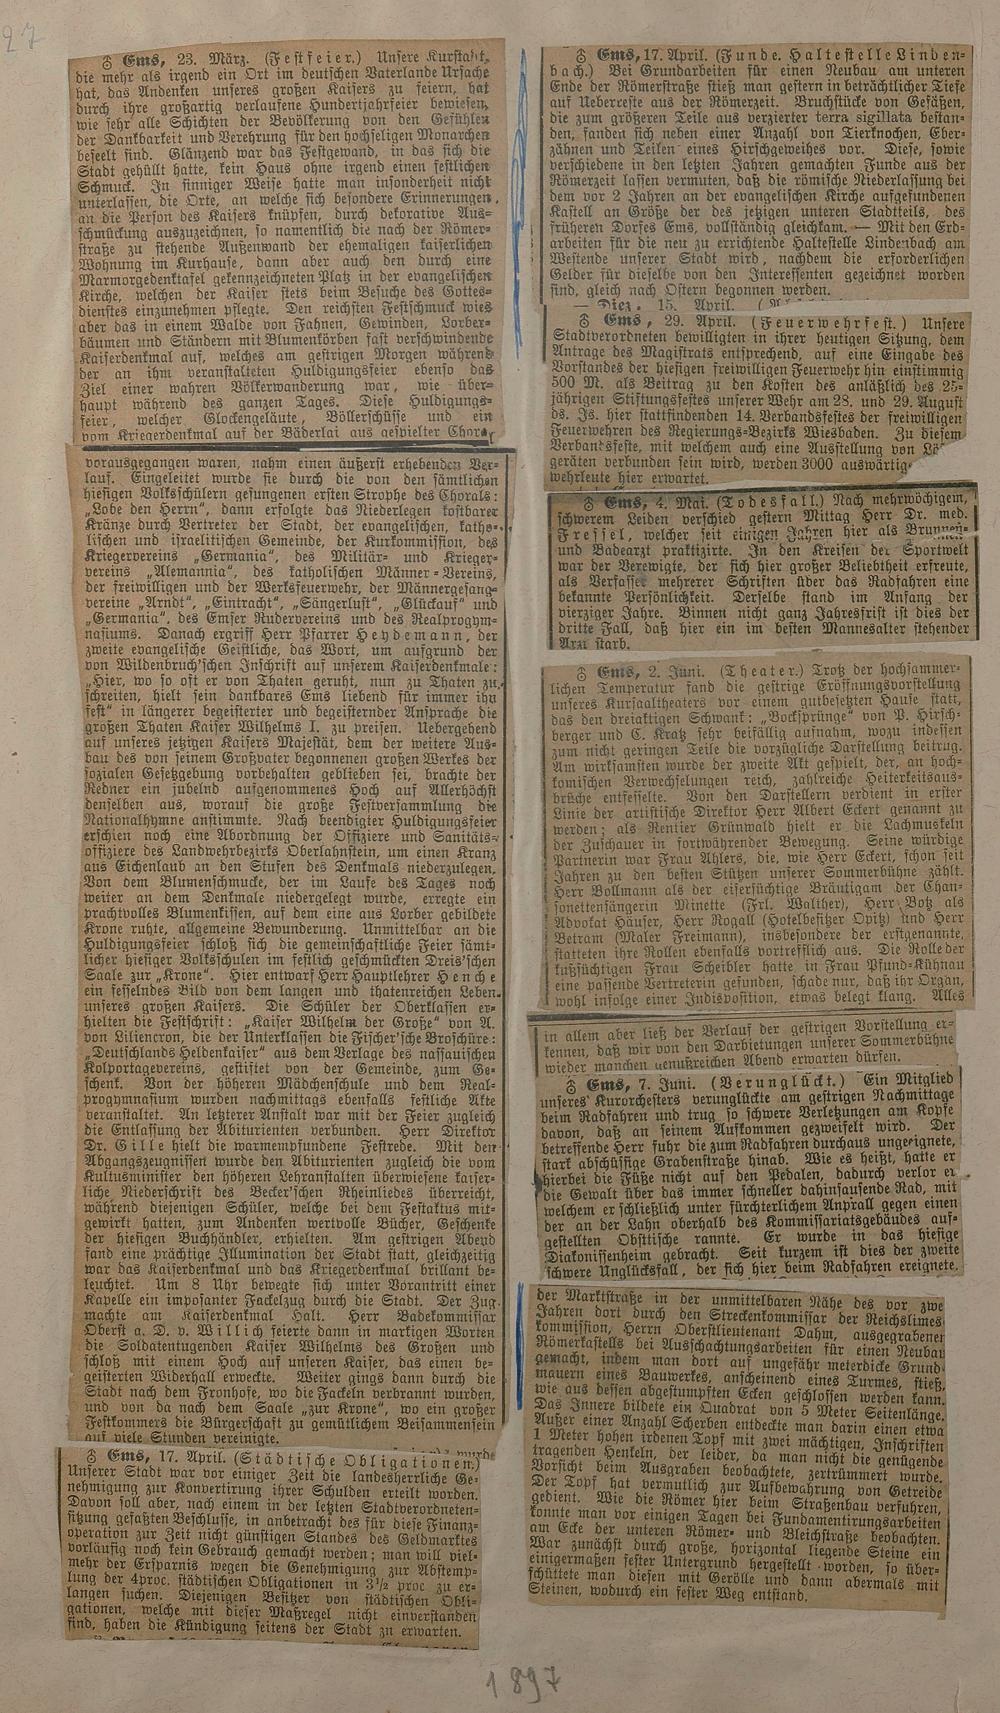 27
♁ Ems, 23. März. (Festfeier.) Unsere Kurstadt,
die mehr als irgend ein Ort im deutschen Vaterlande Ursache
hat, das Andenken unseres großen Kaisers zu feiern, hat
durch ihre großartig verlaufene Hundertjahrfeier bewiesen,
wie sehr alle Schichten der Bevölkerung von den Gefühlen
der Dankbarkeit und Verehrung für den hochseligen Monarchen
beseelt sind. Glänzend war das Festgewand, in das sich die
Stadt gehüllt hatte, kein Haus ohne irgend einen festlichen
Schmuck. In sinniger Weise hatte man insonderheit nicht
unterlassen, die Orte, an welche sich besondere Erinnerungen
an die Person des Kaisers knüpfen, durch dekorative Aus-
schmückung auszuzeichnen, so namentlich die nach der Römer-
straße zu stehende Außenwand der ehemaligen kaiserlichen
Wohnung im Kurhause, dann aber auch den durch eine
Marmorgedenktafel gekennzeichneten Platz in der evangelischen
Kirche, welchen der Kaiser stets beim Besuche des Gottes-
dienstes einzunehmen pflegte. Den reichsten Festschmuck wies
aber das in einem Walde von Fahnen, Gewinden, Lorber-
bäumen und Ständern mit Blumenkörben fast verschwindende
Kaiserdenkmal auf, welches am gestrigen Morgen während
der an ihm veranstalteten Huldigungsfeier ebenso das
Ziel einer wahren Völkerwanderung war, wie über-
haupt während des ganzen Tages. Diese Huldigungs-
feier, welcher Glockengeläute, Böllerschüsse und ein
vom Kriegerdenkmal auf der Bäderlai aus gespielter Choral
vorausgegangen waren, nahm einen äußerst erhebenden Ver-
lauf. Eingeleitet wurde sie durch die von den sämtlichen
hiesigen Volksschülern gesungenen ersten Strophe des Chorals:
„Lobe den Herrn“, dann erfolgte das Niederlegen kostbarer
Kränze durch Vertreter der Stadt, der evangelischen, katho-
lischen und israelitischen Gemeinde, der Kurkommission, des
Kriegervereins „Germania“, des Militär- und Krieger-
vereins „Alemannia“, des katholischen Männer-Vereins,
der freiwilligen und der Werksfeuerwehr, der Männergesang-
vereine „Arndt“, „Eintracht“, „Sängerlust“, „Glückauf“ und
„Germania“, des Emser Rudervereins und des Realprogym-
nasiums. Danach ergriff Herr Pfarrer Heydemann, der
zweite evangelische Geistliche, das Wort, um aufgrund der
von Wildenbruch'schen Inschrift auf unserem Kaiserdenkmale:
„Hier, wo so oft er von Thaten geruht, nun zu Thaten zu
schreiten, hielt sein dankbares Ems liebend für immer ihn
fest“ in längerer begeisterter und begeisternder Ansprache die
großen Thaten Kaiser Wilhelms I. zu preisen. Uebergehend
auf unseres jetzigen Kaisers Majestät, dem der weitere Aus-
bau des von seinem Großvater begonnenen großen Werkes der
sozialen Gesetzgebung vorbehalten geblieben sei, brachte der
Redner ein jubelnd aufgenommenes Hoch auf Allerhöchst
denselben aus, worauf die große Festversammlung die
Nationalhymne anstimmte. Nach beendigter Huldigungsfeier
erschien noch eine Abordnung der Offiziere und Sanitäts-
offiziere des Landwehrbezirks Oberlahnstein, um einen Kranz
aus Eichenlaub an den Stufen des Denkmals niederzulegen.
Von dem Blumenschmucke, der im Laufe des Tages noch
weiter an dem Denkmale niedergelegt wurde, erregte ein
prachtvolles Blumenkissen, auf dem eine aus Lorber gebildete
Krone ruhte, allgemeine Bewunderung. Unmittelbar an die
Huldigungsfeier schloß sich die gemeinschaftliche Feier sämt-
licher hiesiger Volksschulen im festlich geschmückten Dreis'schen
Saale zur „Krone“. Hier entwarf Herr Hauptlehrer Henche
ein fesselndes Bild von dem langen und thatenreichen Leben
unseres großen Kaisers. Die Schüler der Oberklassen er-
hielten die Festschrift: „Kaiser Wilhelm der Große“ von A.
von Liliencron, die der Unterklassen die Fischer'sche Broschüre:
„Deutschlands Heldenkaiser“ aus dem Verlage des nassauischen
Kolportagevereins, gestiftet von der Gemeinde, zum Ge-
schenk. Von der höheren Mädchenschule und dem Real-
progymnasium wurden nachmittags ebenfalls festliche Akte
veranstaltet. An letzterer Anstalt war mit der Feier zugleich
die Entlassung der Abiturienten verbunden. Herr Direktor
Dr. Gille hielt die warmempfundene Festrede. Mit den
Abgangszeugnissen wurde den Abiturienten zugleich die vom
Kultusminister den höheren Lehranstalten überwiesene kaiser-
liche Niederschrift des Becker'schen Rheinliedes überreicht,
während diejenigen Schüler, welche bei dem Festaktus mit-
gewirkt hatten, zum Andenken wertvolle Bücher, Geschenke
der hiesigen Buchhändler, erhielten. Am gestrigen Abend
fand eine prächtige Illumination der Stadt statt, gleichzeitig
war das Kaiserdenkmal und das Kriegerdenkmal brillant be-
leuchtet. Um 8 Uhr bewegte sich unter Vorantritt einer
Kapelle ein imposanter Fackelzug durch die Stadt. Der Zug
machte am Kaiserdenkmal Halt. Herr Badekommissar
Oberst a. D. v. Willich feierte dann in markigen Worten
die Soldatentugenden Kaiser Wilhelms des Großen und
schloß mit einem Hoch auf unseren Kaiser, das einen be-
geisterten Widerhall erweckte. Weiter gings dann durch die
Stadt nach dem Fronhofe, wo die Fackeln verbrannt wurden,
und von da nach dem Saale „zur Krone“, wo ein großer
Festkommers die Bürgerschaft zu gemütlichem Beisammensein
auf viele Stunden vereinigte.
♁ Ems, 17. April. (Städtische Obligationen.)
Unserer Stadt war vor einiger Zeit die landesherrliche Ge-
nehmigung zur Konvertirung ihrer Schulden erteilt worden.
Davon soll aber, nach einem in der letzten Stadtverordneten-
sitzung gefaßten Beschlusse, in anbetracht des für diese Finanz-
operation zur Zeit nicht günstigen Standes des Geldmarktes
vorläufig noch kein Gebrauch gemacht werden; man will viel-
mehr der Ersparnis wegen die Genehmigung zur Abstemp-
lung der 4proc. städtischen Obligationen in 3½ proc zu er-
langen suchen. Diejenigen Besitzer von städtischen Obli-
gationen, welche mit dieser Maßregel nicht einverstanden
sind, haben die Kündigung seitens der Stadt zu erwarten.
♁ Ems, 17. April. (Funde. Haltestelle Linden-
bach.) Bei Grundarbeiten für einen Neubau am unteren
Ende der Römerstraße stieß man gestern in beträchtlicher Tiefe
auf Ueberreste aus der Römerzeit. Bruchstücke von Gefäßen,
die zum größeren Teile aus verzierter terra sigillata bestan-
den, fanden sich neben einer Anzahl von Tierknochen, Eber-
zähnen und Teilen eines Hirschgeweihes vor. Diese, sowie
verschiedene in den letzten Jahren gemachten Funde aus der
Römerzeit lassen vermuten, daß die römische Niederlassung bei
dem vor 2 Jahren an der evangelischen Kirche aufgefundenen
Kastell an Größe der des jetzigen unteren Stadtteils, des
früheren Dorfes Ems, vollständig gleichkam. — Mit den Erd-
arbeiten für die neu zu errichtende Haltestelle Lindenbach am
Westende unserer Stadt wird, nachdem die erforderlichen
Gelder für dieselbe von den Interessenten gezeichnet worden
sind, gleich nach Ostern begonnen werden.
— Diez, 15. April.
♁ Ems, 29. April. (Feuerwehrfest.) Unsere
Stadtverordneten bewilligten in ihrer heutigen Sitzung, dem
Antrage des Magistrats entsprechend, auf eine Eingabe des
Vorstandes der hiesigen freiwilligen Feuerwehr hin einstimmig
500 M. als Beitrag zu den Kosten des anläßlich des 25-
jährigen Stiftungsfestes unserer Wehr am 28. und 29. August
ds. Js. hier stattfindenden 14. Verbandsfestes der freiwilligen
Feuerwehren des Regierungs-Bezirks Wiesbaden. Zu diesem
Verbandsfeste, mit welchem auch eine Ausstellung von Lös
geräten verbunden sein wird, werden 3000 auswärtige
wehrleute hier erwartet.
♁ Ems, 4. Mai. (Todesfall.) Nach mehrwöchigem,
schwerem Leiden verschied gestern Mittag Herr Dr. med.
Fressel, welcher seit einigen Jahren hier als Brunnen-
und Badearzt praktizirte. In den Kreisen der Sportwelt
war der Verewigte, der sich hier großer Beliebtheit erfreute,
als Verfasser mehrerer Schriften über das Radfahren eine
bekannte Persönlichkeit. Derselbe stand im Anfang der
vierziger Jahre. Binnen nicht ganz Jahresfrist ist dies der
dritte Fall, daß hier ein im besten Mannesalter stehender
Arzt starb.
♁ Ems, 2. Juni. (Theater.) Trotz der hochsommer-
lichen Temperatur fand die gestrige Eröffnungsvorstellung
unseres Kursaaltheaters vor einem gutbesetzten Hause statt,
das den dreiaktigen Schwank: „Bocksprünge“ von P. Hirsch-
berger und C. Kratz sehr beifällig aufnahm, wozu indessen
zum nicht geringen Teile die vorzügliche Darstellung beitrug.
Am wirksamsten wurde der zweite Akt gespielt, der, an hoch-
komischen Verwechselungen reich, zahlreiche Heiterkeitsaus-
brüche entfesselte. Von den Darstellern verdient in erster
Linie der artistische Direktor Herr Albert Eckert genannt zu
werden; als Rentier Grünwald hielt er die Lachmuskeln
der Zuschauer in fortwährender Bewegung. Seine würdige
Partnerin war Frau Ahlers, die, wie Herr Eckert, schon seit
Jahren zu den besten Stützen unserer Sommerbühne zählt.
Herr Bollmann als der eifersüchtige Bräutigam der Chan-
sonettensängerin Minette (Frl. Walther), Herr Botz als
Advokat Häuser, Herr Rogall (Hotelbesitzer Opitz) und Herr
Betram (Maler Freimann), insbesondere der erstgenannte,
statteten ihre Rollen ebenfalls vortrefflich aus. Die Rolle der
kußsüchtigen Frau Scheibler hatte in Frau Pfund-Kühnau
eine passende Vertreterin gefunden, schade nur, daß ihr Organ,
wohl infolge einer Indisposition, etwas belegt klang. Alles
in allem aber ließ der Verlauf der gestrigen Vorstellung er-
kennen, daß wir von den Darbietungen unserer Sommerbühne
wieder manchen genußreichen Abend erwarten dürfen.
♁ Ems, 7. Juni. (Verunglückt.) Ein Mitglied
unseres Kurorchesters verunglückte am gestrigen Nachmittage
beim Radfahren und trug so schwere Verletzungen am Kopfe
davon, daß an seinem Aufkommen gezweifelt wird. Der
betreffende Herr fuhr die zum Radfahren durchaus ungeeignete,
stark abschüssige Grabenstraße hinab. Wie es heißt, hatte er
hierbei die Füße nicht auf den Pedalen, dadurch verlor er
die Gewalt über das immer schneller dahinsausende Rad, mit
welchem er schließlich unter fürchterlichem Anprall gegen einen
der an der Lahn oberhalb des Kommissariatsgebäudes auf-
gestellten Obsttische rannte. Er wurde in das hiesige
Diakonissenheim gebracht. Seit kurzem ist dies der zweite
schwere Unglücksfall, der sich hier beim Radfahren ereignete.
der Marktstraße in der unmittelbaren Nähe des vor zwe
Jahren dort durch den Streckenkommissar der Reichslimes
kommission, Herrn Oberstlieutenant Dahm, ausgegrabenen
Römerkastells bei Ausschachtungsarbeiten für einen Neubau
gemacht, indem man dort auf ungefähr meterdicke Grund-
mauern eines Bauwerkes, anscheinend eines Turmes, stieß,
wie aus dessen abgestumpften Ecken geschlossen werden kann.
Das Innere bildete ein Quadrat von 5 Meter Seitenlänge.
Außer einer Anzahl Scherben entdeckte man darin einen etwa
1 Meter hohen irdenen Topf mit zwei mächtigen, Inschriften
tragenden Henkeln, der leider, da man nicht die genügende
Vorsicht beim Ausgraben beobachtete, zertrümmert wurde.
Der Topf hat vermutlich zur Aufbewahrung von Getreide
gedient. Wie die Römer hier beim Straßenbau verfuhren,
konnte man vor einigen Tagen bei Fundamentirungsarbeiten
am Ecke der unteren Römer- und Bleichstraße beobachten.
War zunächst durch große, horizontal liegende Steine ein
einigermaßen fester Untergrund hergestellt worden, so über-
schüttete man diesen mit Gerölle und dann abermals mit
Steinen, wodurch ein fester Weg entstand.
1897